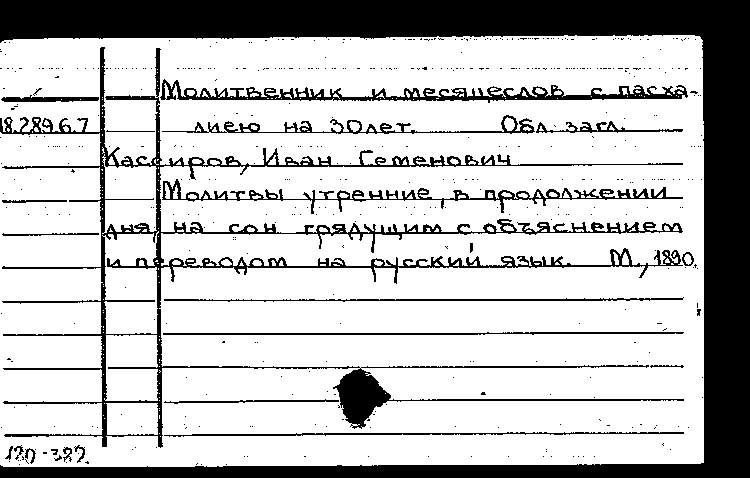 Молитвенник и месяцеслов с пасха-
18.289.6.7 лиею на 30 лет. Обл. загл.
Кассиров, Иван Семенович
Молитвы утренние, в продолжении
дня, на сон грядущим с объяснением
и переводом на русский язык. М., 1890.
120-382.